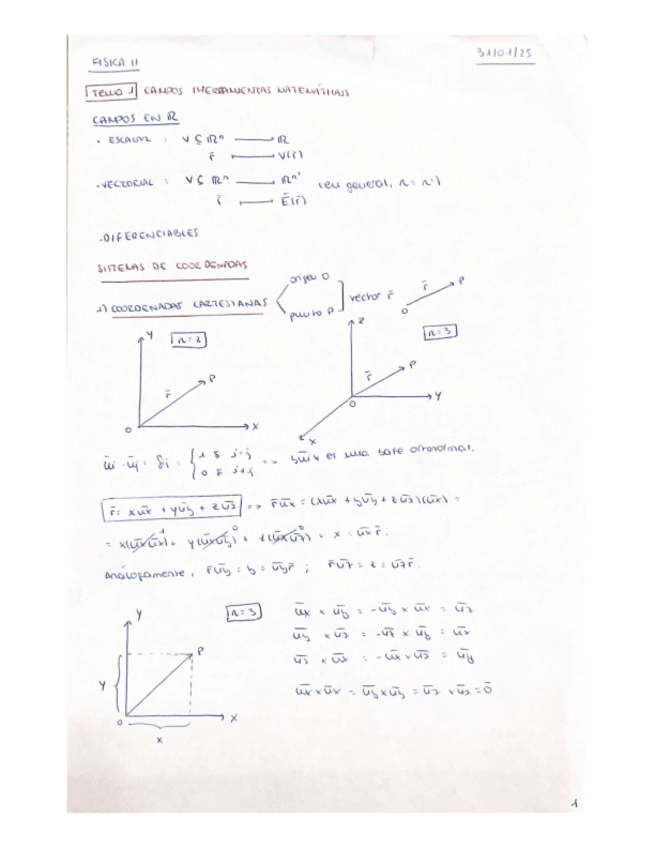 FISICA II
31/01/25
Tema 1 CAMPOS (HERRAMIENTAS MATEMÁTICAS)
CAMPOS EN ℝ
• ESCALAR : V ⊆ ℝⁿ ⟶ ℝ
r̄ ⟼ V(r̄)
• VECTORIAL : V ⊆ ℝⁿ ⟶ ℝⁿ' (en general, n = n')
r̄ ⟼ Ē(r̄)
• DIFERENCIABLES
SISTEMAS DE COORDENADAS
1) COORDENADAS CARTESIANAS
origen O
punto P
vector r̄
r̄ P
O
Y n=2
r̄ P
O X
Z n=3
r̄ P
O Y
X
ūi · ūj = δij = { 1 si i=j
0 si i≠j
=> {ūi} es una base ortonormal.
r̄ = xūx + yūy + zūz => r̄ūx = (xūx + yūy + zūz)(ūx) =
= x(ūxūx)¹ + y(ūxūy)⁰ + z(ūxūz)⁰ = x = ūxr̄.
Análogamente, r̄ūy = y = ūyr̄ ; r̄ūz = z = ūzr̄.
Y n=3
P
Y
O X
X
ūx × ūy = -ūy × ūx = ūz
ūy × ūz = -ūz × ūy = ūx
ūz × ūx = -ūx × ūz = ūy
ūx × ūx = ūy × ūy = ūz × ūz = 0̄
1